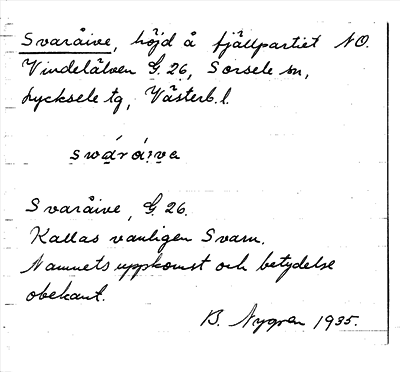 Svaråive, höjd å fjällpartiet NO.
Vindelälven G. 26, Sorsele sn,
Lycksele tg, Västerb. l.
swa̱rá:i̯va
Svaråive, G. 26.
Kallas vanligen Svarn.
Namnets uppkomst och betydelse
obekant.
B. Nygren 1935.